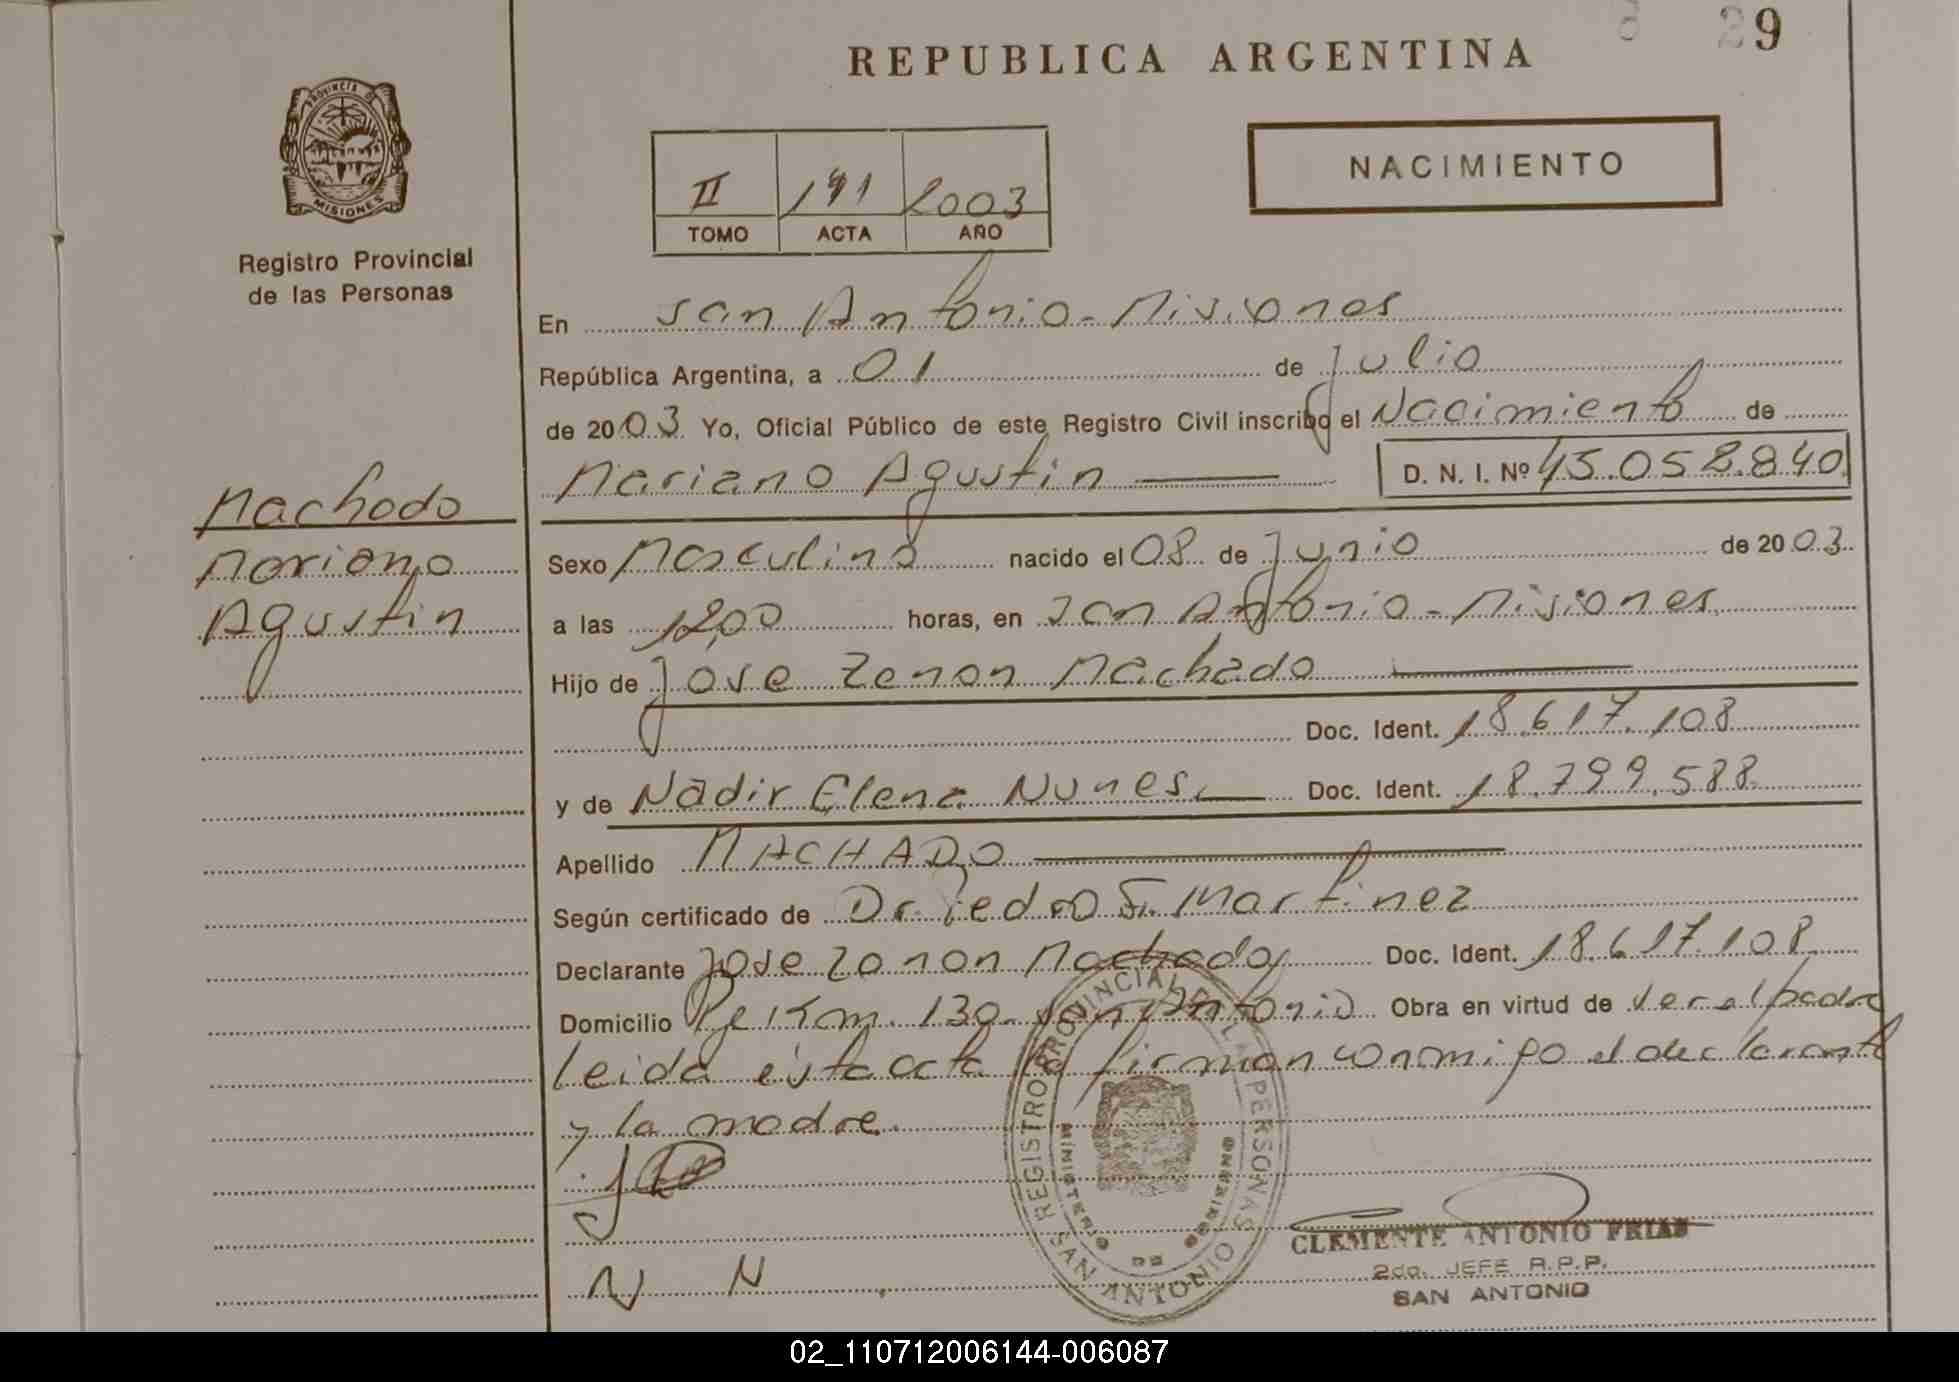 29
REPUBLICA ARGENTINA
PROVINCIA DE
MISIONES
NACIMIENTO
II 191 2003
TOMO ACTA AÑO
Registro Provincial
de las Personas
En San Antonio - Misiones
República Argentina, a 01 de Julio
de 2003 Yo, Oficial Público de este Registro Civil inscribo el Nacimiento de
Mariano Agustin D. N. I. Nº 45.058.840
Machado
Mariano
Agustin
Sexo Masculino nacido el 08 de Junio de 2003
a las 12,00 horas, en San Antonio - Misiones
Hijo de Jose Zenon Machado
Doc. Ident. 18.617.108
y de Nadir Elena Nunes Doc. Ident. 18.799.588
Apellido MACHADO
Según certificado de Dr. Pedro S. Martinez
Declarante Jose Zenon Machado Doc. Ident. 18.617.108
Domicilio Pje Km. 130 - San Antonio Obra en virtud de ser el padre
leida ésta acta la firman conmigo el declarante
y la madre.
N N
REGISTRO PROVINCIAL DE LAS PERSONAS
MINISTERIO DE GOBIERNO
SAN ANTONIO
CLEMENTE ANTONIO FRIAS
2do. JEFE R.P.P.
SAN ANTONIO
02_110712006144-006087